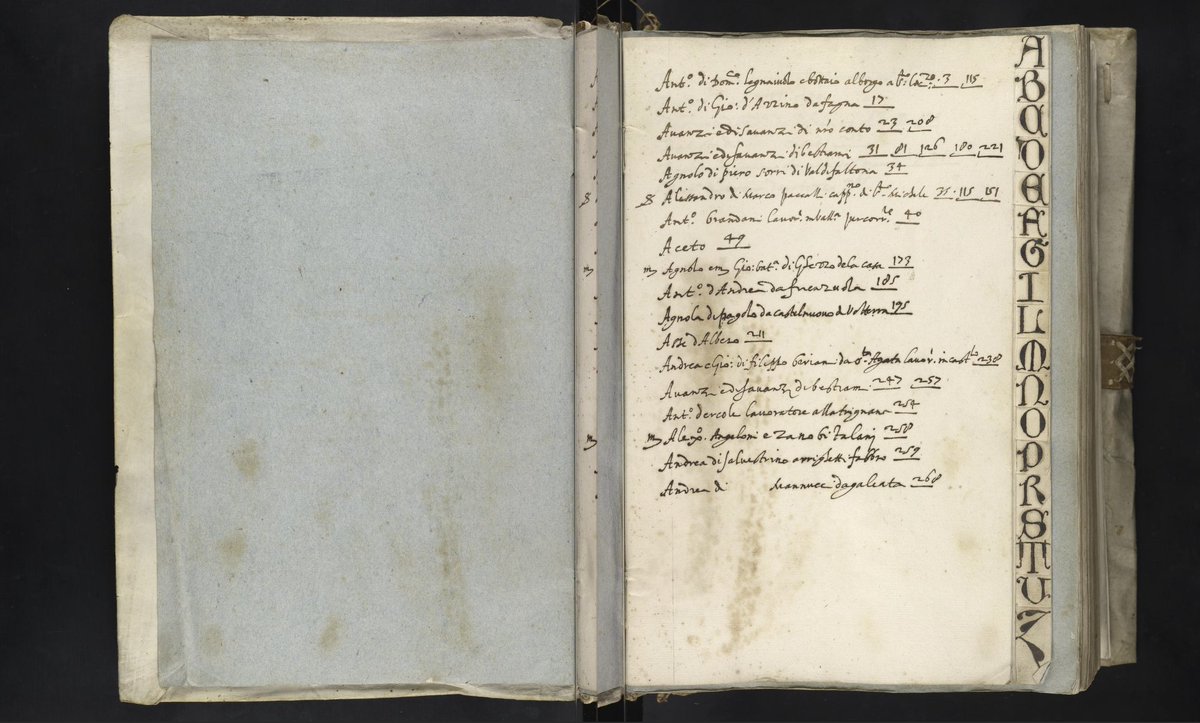 Ant.º di Dom.co legnaiuolo e bottaio al borgo a 3 115
Ant.º di Gio: d'Azzino da fagna 17
Avanzi e disavanzi di nro conto 23 208
Avanzi e disavanzi di bestiami 31 81 126 180 221
Agnolo di piero sorri di Valdifaltona 34
Alessandro di Marco capp.no di Michele 35 115 151
Ant.º brandani lavor. 40
Aceto 49
m Agnolo e m Gio: bat.a di de la casa 173
Ant.º d'Andrea da firenzuola 185
Agnola di pagolo da castelnuovo di Volterra 195
Asse d'Albero 211
Andrea e Gio: di filippo da S.ta Agata lavor. 238
Avanzi e disavanzi di bestiami 247 257
Ant.º dercole lavoratore alla trignana 254
m Aless.o Angeloni e Zanobi Talani 258
Andrea di salvestrino arrighetti fabbro 259
Andrea di Mannucci da galeata 268
A
B
C
D
E
F
G
I
L
M
N
O
P
R
S
T
V
Z